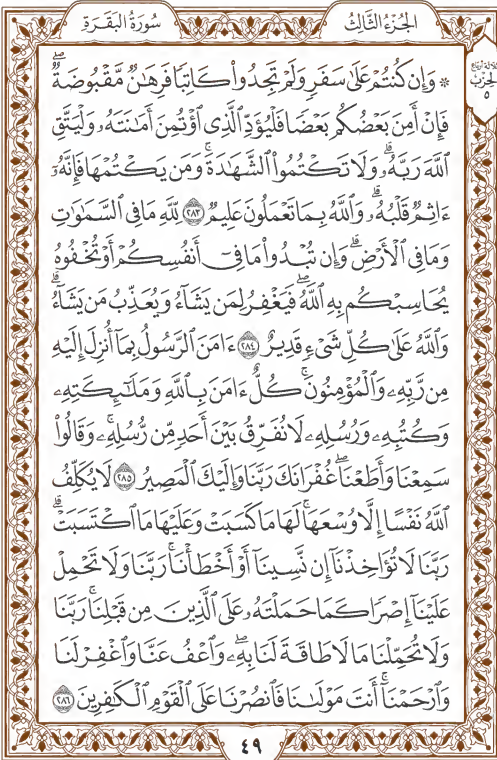 الجُزْءُ الثَّالِثُ
سُورَةُ البَقَرَةِ
۞ وَإِن كُنتُمْ عَلَىٰ سَفَرٍ وَلَمْ تَجِدُوا۟ كَاتِبًا فَرِهَـٰنٌ مَّقْبُوضَةٌ ۖ
فَإِنْ أَمِنَ بَعْضُكُم بَعْضًا فَلْيُؤَدِّ ٱلَّذِى ٱؤْتُمِنَ أَمَـٰنَتَهُۥ وَلْيَتَّقِ
ٱللَّهَ رَبَّهُۥ ۗ وَلَا تَكْتُمُوا۟ ٱلشَّهَـٰدَةَ ۚ وَمَن يَكْتُمْهَا فَإِنَّهُۥٓ
ءَاثِمٌ قَلْبُهُۥ ۗ وَٱللَّهُ بِمَا تَعْمَلُونَ عَلِيمٌ ٢٨٣ لِّلَّهِ مَا فِى ٱلسَّمَـٰوَٰتِ
وَمَا فِى ٱلْأَرْضِ ۗ وَإِن تُبْدُوا۟ مَا فِىٓ أَنفُسِكُمْ أَوْ تُخْفُوهُ
يُحَاسِبْكُم بِهِ ٱللَّهُ ۖ فَيَغْفِرُ لِمَن يَشَآءُ وَيُعَذِّبُ مَن يَشَآءُ ۗ
وَٱللَّهُ عَلَىٰ كُلِّ شَىْءٍ قَدِيرٌ ٢٨٤ ءَامَنَ ٱلرَّسُولُ بِمَآ أُنزِلَ إِلَيْهِ
مِن رَّبِّهِۦ وَٱلْمُؤْمِنُونَ ۚ كُلٌّ ءَامَنَ بِٱللَّهِ وَمَلَـٰٓئِكَتِهِۦ
وَكُتُبِهِۦ وَرُسُلِهِۦ لَا نُفَرِّقُ بَيْنَ أَحَدٍ مِّن رُّسُلِهِۦ ۚ وَقَالُوا۟
سَمِعْنَا وَأَطَعْنَا ۖ غُفْرَانَكَ رَبَّنَا وَإِلَيْكَ ٱلْمَصِيرُ ٢٨٥ لَا يُكَلِّفُ
ٱللَّهُ نَفْسًا إِلَّا وُسْعَهَا ۚ لَهَا مَا كَسَبَتْ وَعَلَيْهَا مَا ٱكْتَسَبَتْ ۗ
رَبَّنَا لَا تُؤَاخِذْنَآ إِن نَّسِينَآ أَوْ أَخْطَأْنَا ۚ رَبَّنَا وَلَا تَحْمِلْ
عَلَيْنَآ إِصْرًا كَمَا حَمَلْتَهُۥ عَلَى ٱلَّذِينَ مِن قَبْلِنَا ۚ رَبَّنَا
وَلَا تُحَمِّلْنَا مَا لَا طَاقَةَ لَنَا بِهِۦ ۖ وَٱعْفُ عَنَّا وَٱغْفِرْ لَنَا
وَٱرْحَمْنَآ ۚ أَنتَ مَوْلَىٰنَا فَٱنصُرْنَا عَلَى ٱلْقَوْمِ ٱلْكَـٰفِرِينَ ٢٨٦
ثلاثة أرباع
الحزب
٥
٤٩